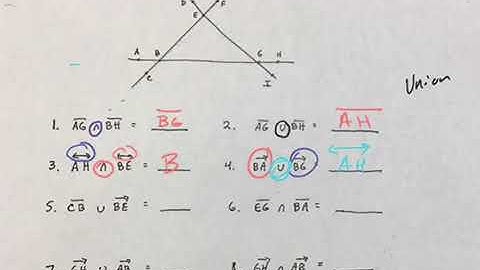 D F
E
A B G H
C I
Union
1. A̅G̅ ∩ B̅H̅ = B̅G̅ 2. A̅G̅ ∪ B̅H̅ = A̅H̅
3. AH ∩ BE = B 4. BA ∪ BG = AH
5. CB ∪ BE = ____ 6. EG ∩ BA = ____
GH ∪ AB = 8. GH ∩ AB =